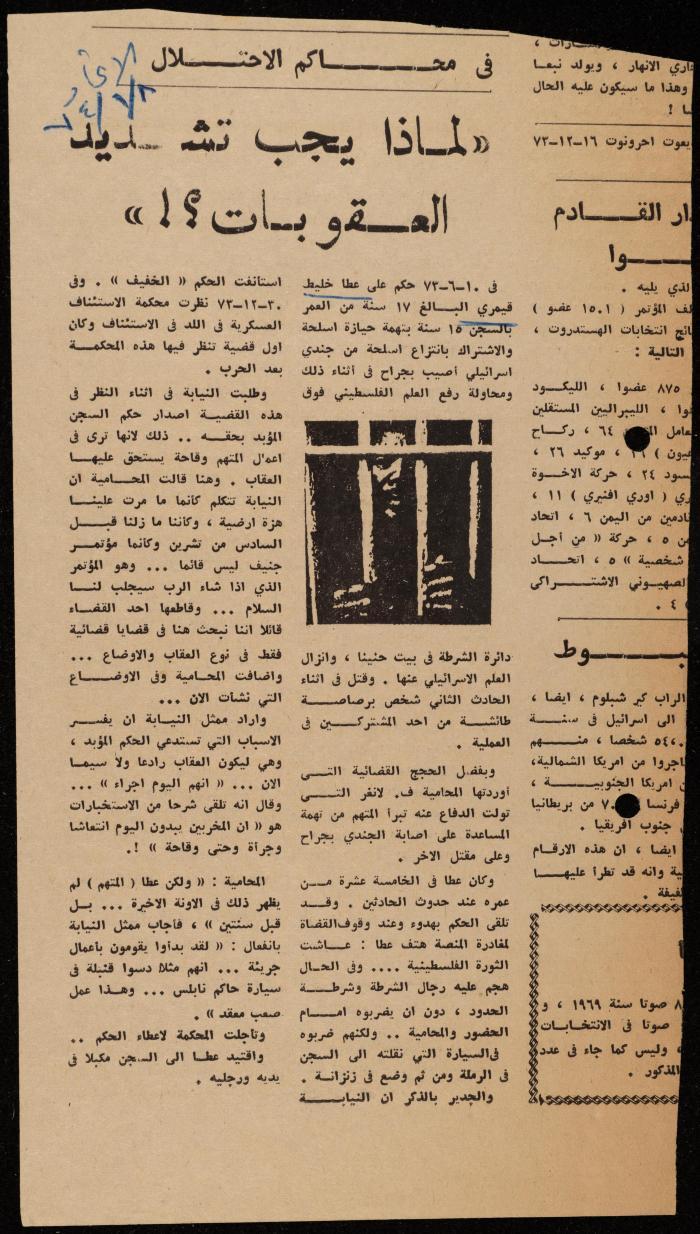 فى محاكم الاحتلال
«لماذا يجب تشديد
العقوبات؟!»
فى ١٠-٦-٧٣ حكم على عطا خليط
قيمري البالغ ١٧ سنة من العمر
بالسجن ١٥ سنة بتهمة حيازة اسلحة
والاشتراك بانتزاع اسلحة من جندي
اسرائيلي أصيب بجراح فى أثناء ذلك
ومحاولة رفع العلم الفلسطيني فوق
دائرة الشرطة فى بيت حنينا ، وانزال
العلم الاسرائيلي عنها . وقتل فى اثناء
الحادث الثاني شخص برصاصة
طائشة من احد المشتركين فى
العملية .
وبفضل الحجج القضائية التى
أوردتها المحامية ف. لانغر التى
تولت الدفاع عنه تبرأ المتهم من تهمة
المساعدة على اصابة الجندي بجراح
وعلى مقتل الاخر .
وكان عطا فى الخامسة عشرة من
عمره عند حدوث الحادثين . وقد
تلقى الحكم بهدوء وعند وقوف القضاة
لمغادرة المنصة هتف عطا : عاشت
الثورة الفلسطينية .... وفى الحال
هجم عليه رجال الشرطة وشرطة
الحدود ، دون ان يضربوه امام
الحضور والمحامية .. ولكنهم ضربوه
فى السيارة التي نقلته الى السجن
فى الرملة ومن ثم وضع فى زنزانة .
والجدير بالذكر ان النيابة
استانفت الحكم « الخفيف » . وفى
٣٠-١٢-٧٣ نظرت محكمة الاستئناف
العسكرية فى اللد فى الاستئناف وكان
اول قضية تنظر فيها هذه المحكمة
بعد الحرب .
وطلبت النيابة فى اثناء النظر فى
هذه القضية اصدار حكم السجن
المؤبد بحقه .. ذلك لانها ترى فى
اعمال المتهم وقاحة يستحق عليها
العقاب . وهنا قالت المحامية ان
النيابة تتكلم كأنما ما مرت علينا
هزة ارضية ، وكأننا ما زلنا قبل
السادس من تشرين وكأنما مؤتمر
جنيف ليس قائما ... وهو المؤتمر
الذي اذا شاء الرب سيجلب لنا
السلام ... وقاطعها احد القضاء
قائلا اننا نبحث هنا فى قضايا قضائية
فقط فى نوع العقاب والاوضاع ...
واضافت المحامية وفى الاوضاع
التي نشأت الان ...
واراد ممثل النيابة ان يفسر
الاسباب التي تستدعي الحكم المؤبد ،
وهي ليكون العقاب رادعا ولا سيما
الان ... « انهم اليوم اجراء » ...
وقال انه تلقى شرحا من الاستخبارات
هو « ان المخربين يبدون اليوم انتعاشا
وجرأة وحتى وقاحة » !.
المحامية : « ولكن عطا ( المتهم ) لم
يظهر ذلك فى الاونة الاخيرة ... بل
قبل سنتين » ، فأجاب ممثل النيابة
بانفعال : « لقد بدأوا يقومون بأعمال
جريئة ... انهم مثلا دسوا قنبلة فى
سيارة حاكم نابلس ... وهذا عمل
صعب معقد » .
وتأجلت المحكمة لاعطاء الحكم ..
واقتيد عطا الى السجن مكبلا فى
يديه ورجليه .
جاري الانهار ، ويولد نبعا
وهذا ما سيكون عليه الحال
ا !
يعوت احرونوت ١٦-١٢-٧٣
ار القادم
وا
لذي يليه .
لف المؤتمر ( ١٥٠١ عضو )
ائج انتخابات الهستدروت ،
التالية :
٨٧٥ عضوا ، الليكود
وا ، الليبراليين المستقلين
عامل ٦٤ ، ركاح
عيون ) ، موكيد ٢٦ ،
سود ٢٤ ، حركة الاخوة
ري ( اوري افنيري ) ١١ ،
ادمين من اليمن ٦ ، اتحاد
ن ٥ ، حركة « من أجل
شخصية » ٥ ، اتحاد
لصهيوني الاشتراكى
٤ .
بوط
الراب كبر شبلوم ، ايضا ،
الى اسرائيل فى سنة
٥٤٦٠ شخصا ، منهم
اجروا من امريكا الشمالية،
ن امريكا الجنوبية ،
فرنسا ٧٠ من بريطانيا
جنوب أفريقيا .
ايضا ، ان هذه الارقام
ية وانه قد تطرأ عليها
فيفة .
٨ صوتا سنة ١٩٦٩ ، و
صوتا فى الانتخابات
، وليس كما جاء فى عدد
المذكور .